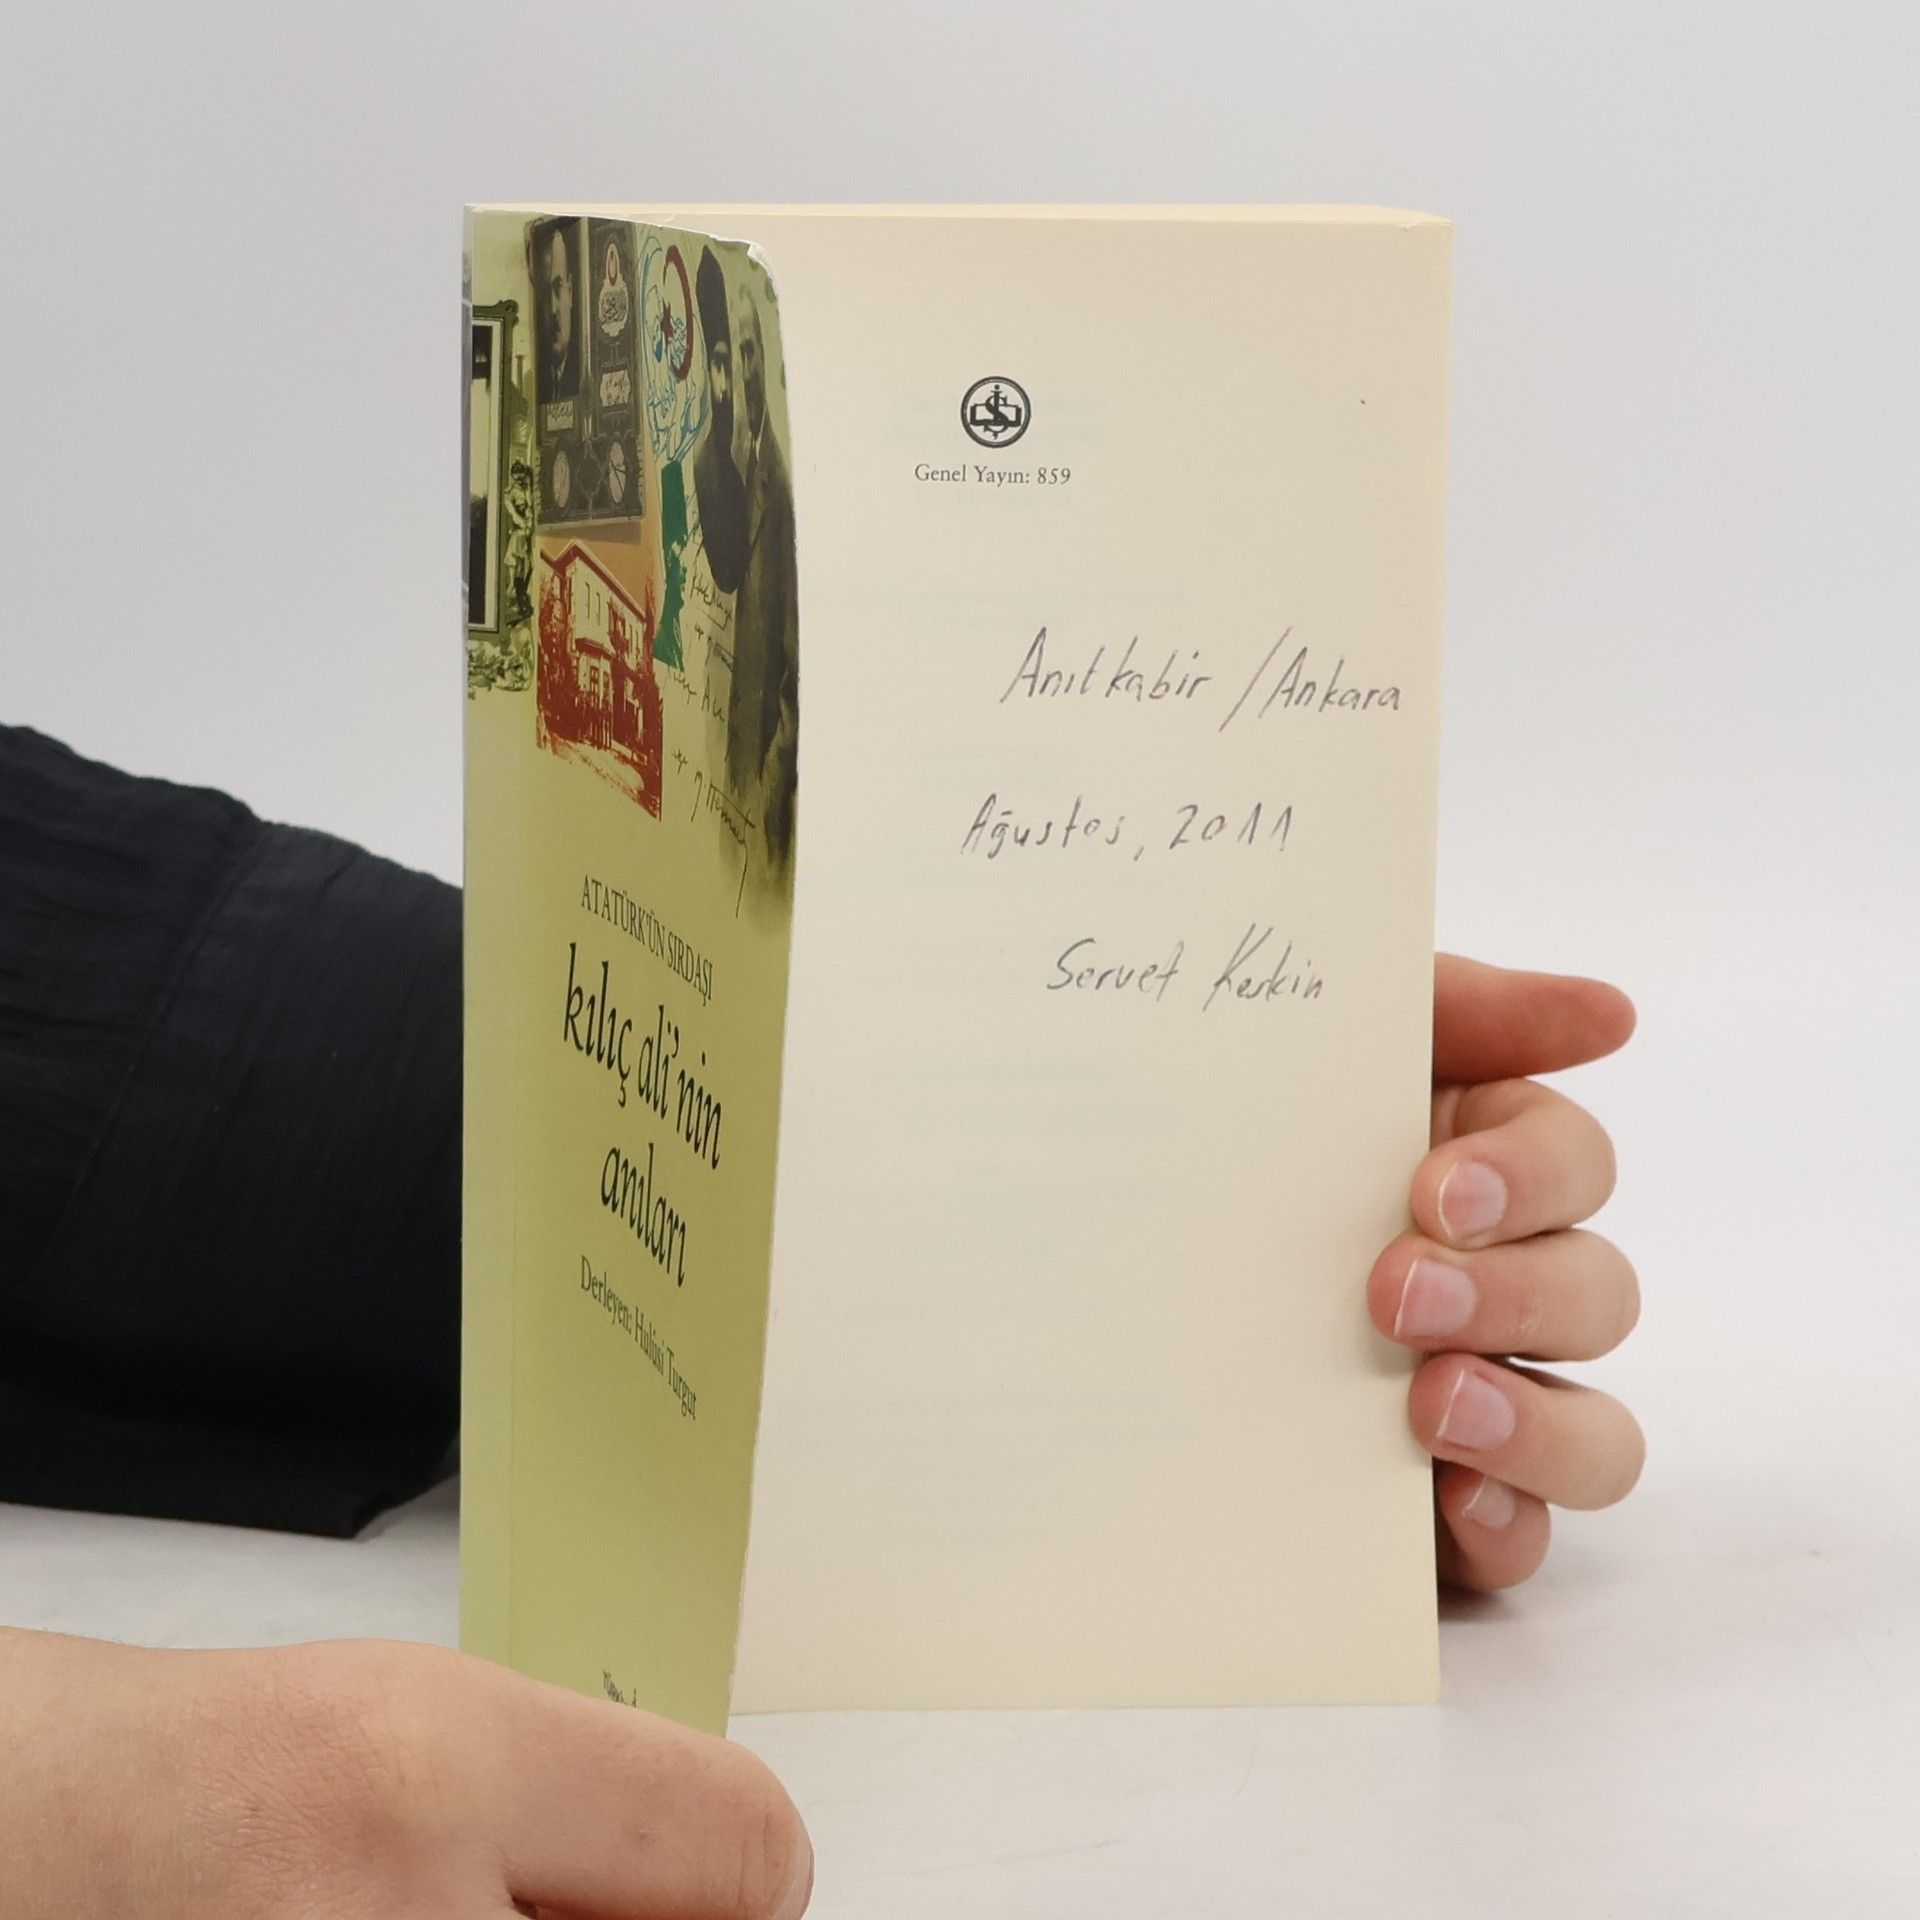 ATATÜRK'ÜN SIRDAŞI
kılıç ali'nin
anıları
Derleyen: Hulûsi Turgut
İŞ
Genel Yayın: 859
Anıtkabir / Ankara
Ağustos, 2011
Servet Keskin